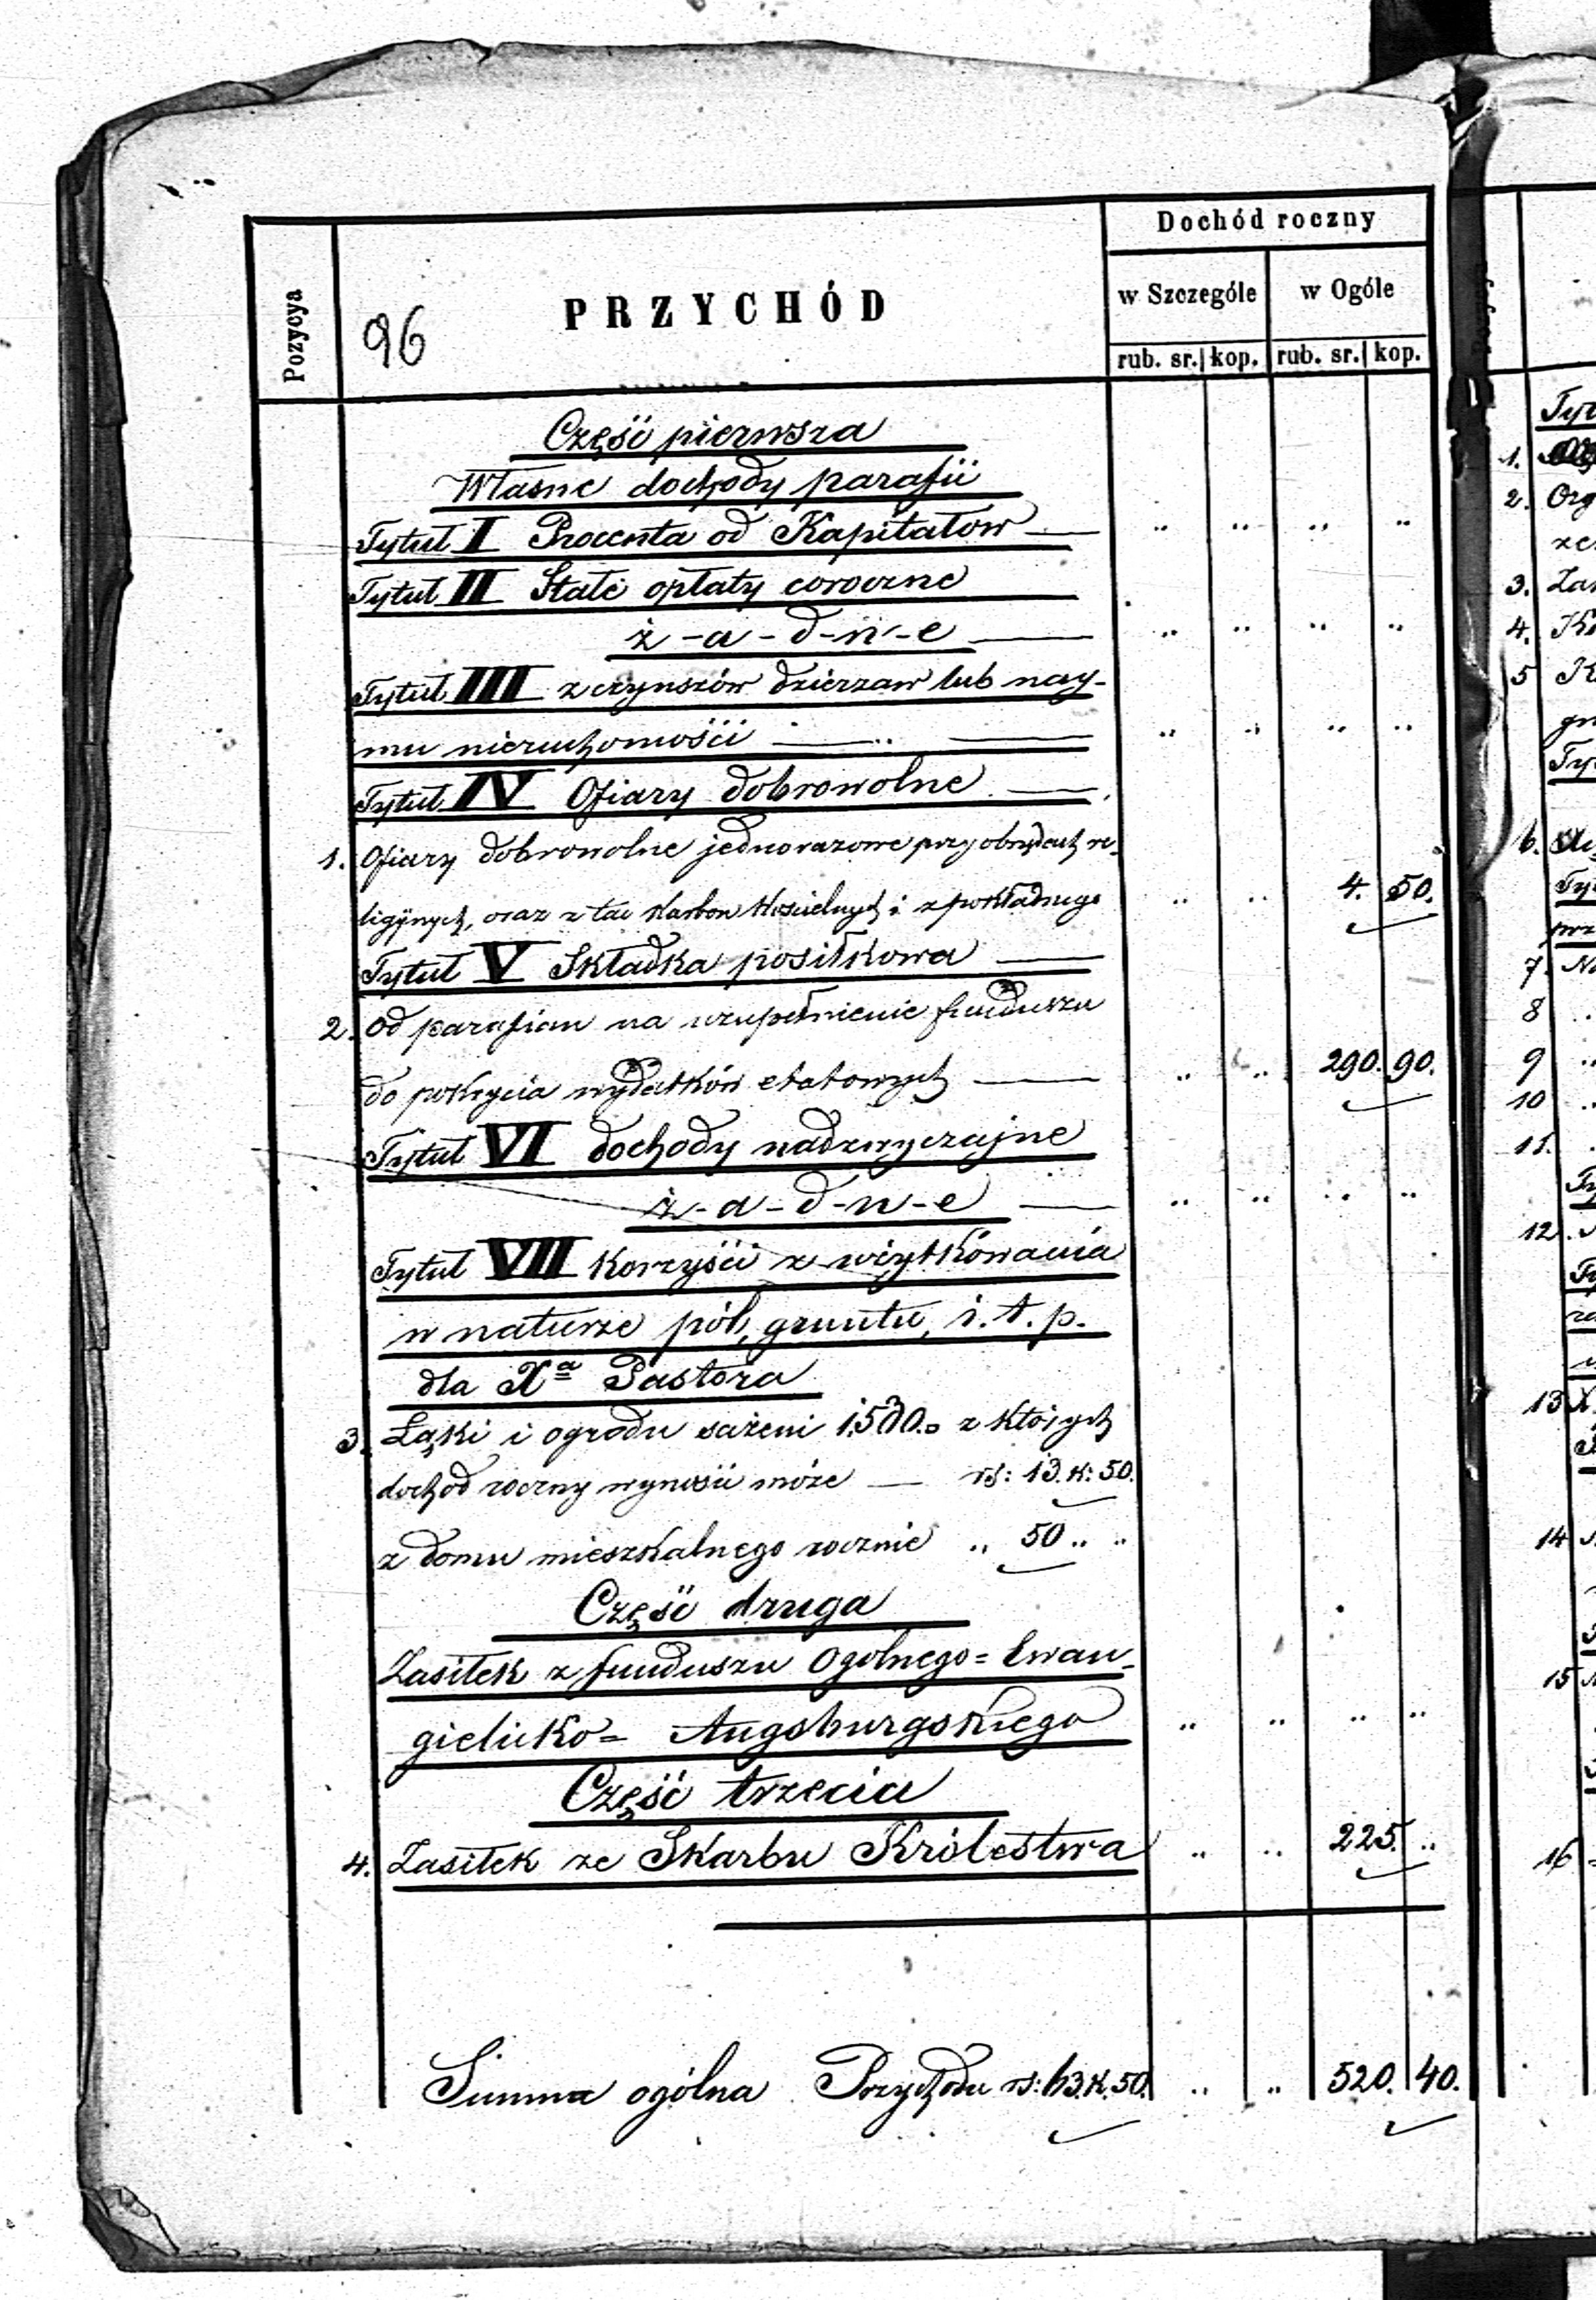 Dochód roczny
Pozycya
96
PRZYCHÓD
w Szczególe
w Ogóle
rub. sr. kop. rub. sr. kop.
Część pierwsza
Własne dochody parafii
Tytuł I Procenta od Kapitałow — „ „ „ „
Tytuł II Stałe opłaty coroczne
ż-a-d-n-e — „ „ „ „
Tytuł III z czynszów dzierzaw lub nay-
mu nieruchomości — „ — „ „ „ „
Tytuł IV Ofiary dobrowolne —
1. Ofiary dobrowolne jednorazowe przy obrzędach re-
ligijnych, oraz z tac skarbon Kościelnych i z pokładnego „ „ 4. 50.
Tytuł V Składka posiłkowa —
2. Od parafian na uzupełnienie funduszu
do pokrycia wydatków etatowych — „ „ 290. 90.
Tytuł VI dochody nadzwyczajne
ż-a-d-n-e — „ „ „ „
Tytuł VII Korzyści z użytkówania
w naturze pól, gruntu, i. t. p.
dla Xa Pastora
3. Łąki i ogrodu sażeni z których
dochód roczny wynosić może — rs: 13. k: 50.
z domu mieszkalnego rocznie „ 50 „ „
Część druga
Zasiłek z funduszu Ogólnego= Ewan-
gielicko= Augsburgskiego „ „ „ „
Część trzecia
4. Zasiłek ze Skarbu Królestwa „ „ 225. „
Summa ogólna Przychodu rs: 63. k. 50. „ „ 520. 40.
1.
2. Org
3.
4.
5
6.
7.
8
9
10
11.
12.
13
14
15
16